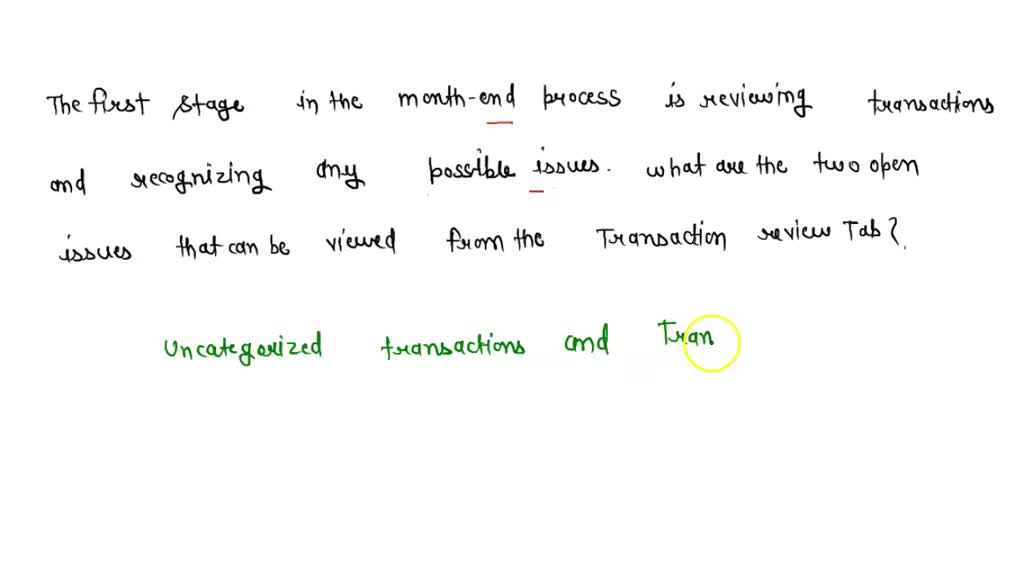 The first stage in the month-end process is reviewing transactions
and recognizing any possible issues. what are the two open
issues that can be viewed from the Transaction review Tab?.
Uncategorized transactions and Tran